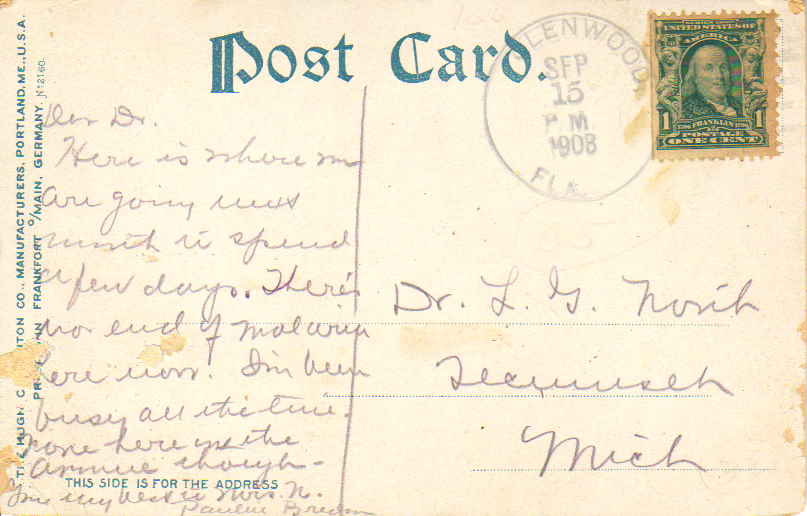 Post Card.
GLENWOOD,
SEP
15
P.M.
1908
FLA.
SERIES 1902
UNITED STATES OF
AMERICA
1 FRANKLIN 1
POSTAGE
ONE CENT
Dear Dr.
Here is where we
are going next
month to spend
a few days. There's
no end of malaria
here now! I'm been
busy all the time.
none here in the
though-
Give my best to Mrs. N.
Pauline
Dr. L. G. North
Tecumseh
Mich
THIS SIDE IS FOR THE ADDRESS
HUGH C. CO., MANUFACTURERS, PORTLAND, ME., U.S.A.
FRANKFORT O/MAIN, GERMANY. No 2160.